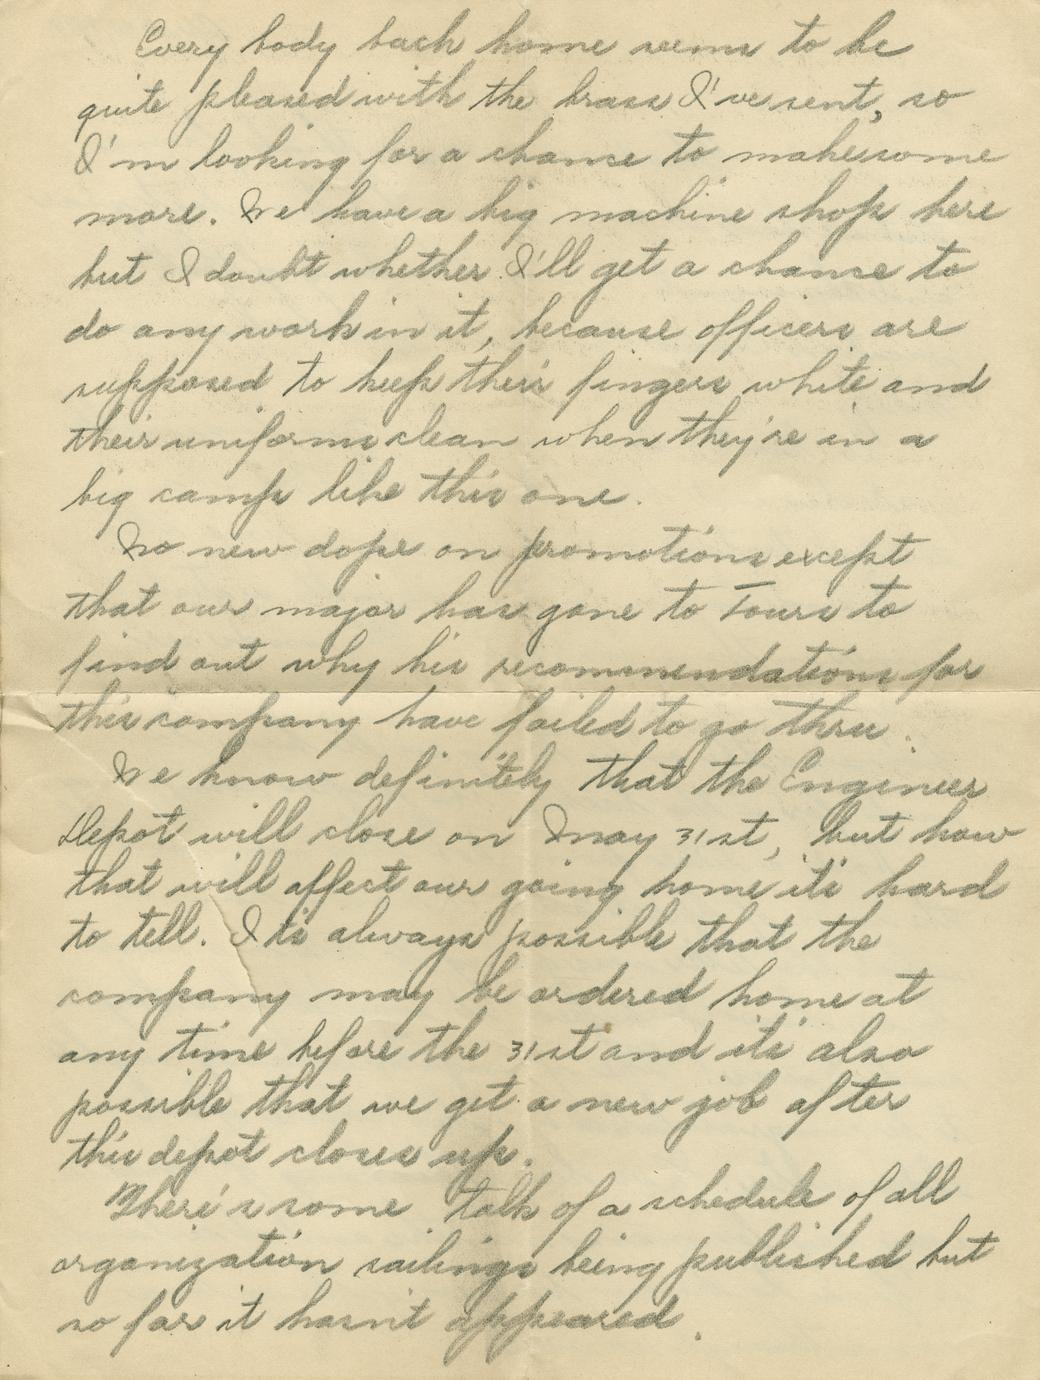 Every body back home seems to be
quite pleased with the brass I've sent, so
I'm looking for a chance to make some
more. We have a big machine shop here
but I doubt whether I'll get a chance to
do any work in it, because officers are
supposed to keep their fingers white and
their uniforms clean when they're in a
big camp like this one.
No new dope on promotions except
that our major has gone to Tours to
find out why his recommendations for
this company have failed to go thru.
We know definitely that the Engineer
Depot will close on May 31st, but how
that will affect our going home it's hard
to tell. It's always possible that the
company may be ordered home at
any time before the 31st and it's also
possible that we get a new job after
this depot closes up.
There's some talk of a schedule of all
organization sailings being published but
so far it hasn't appeared.